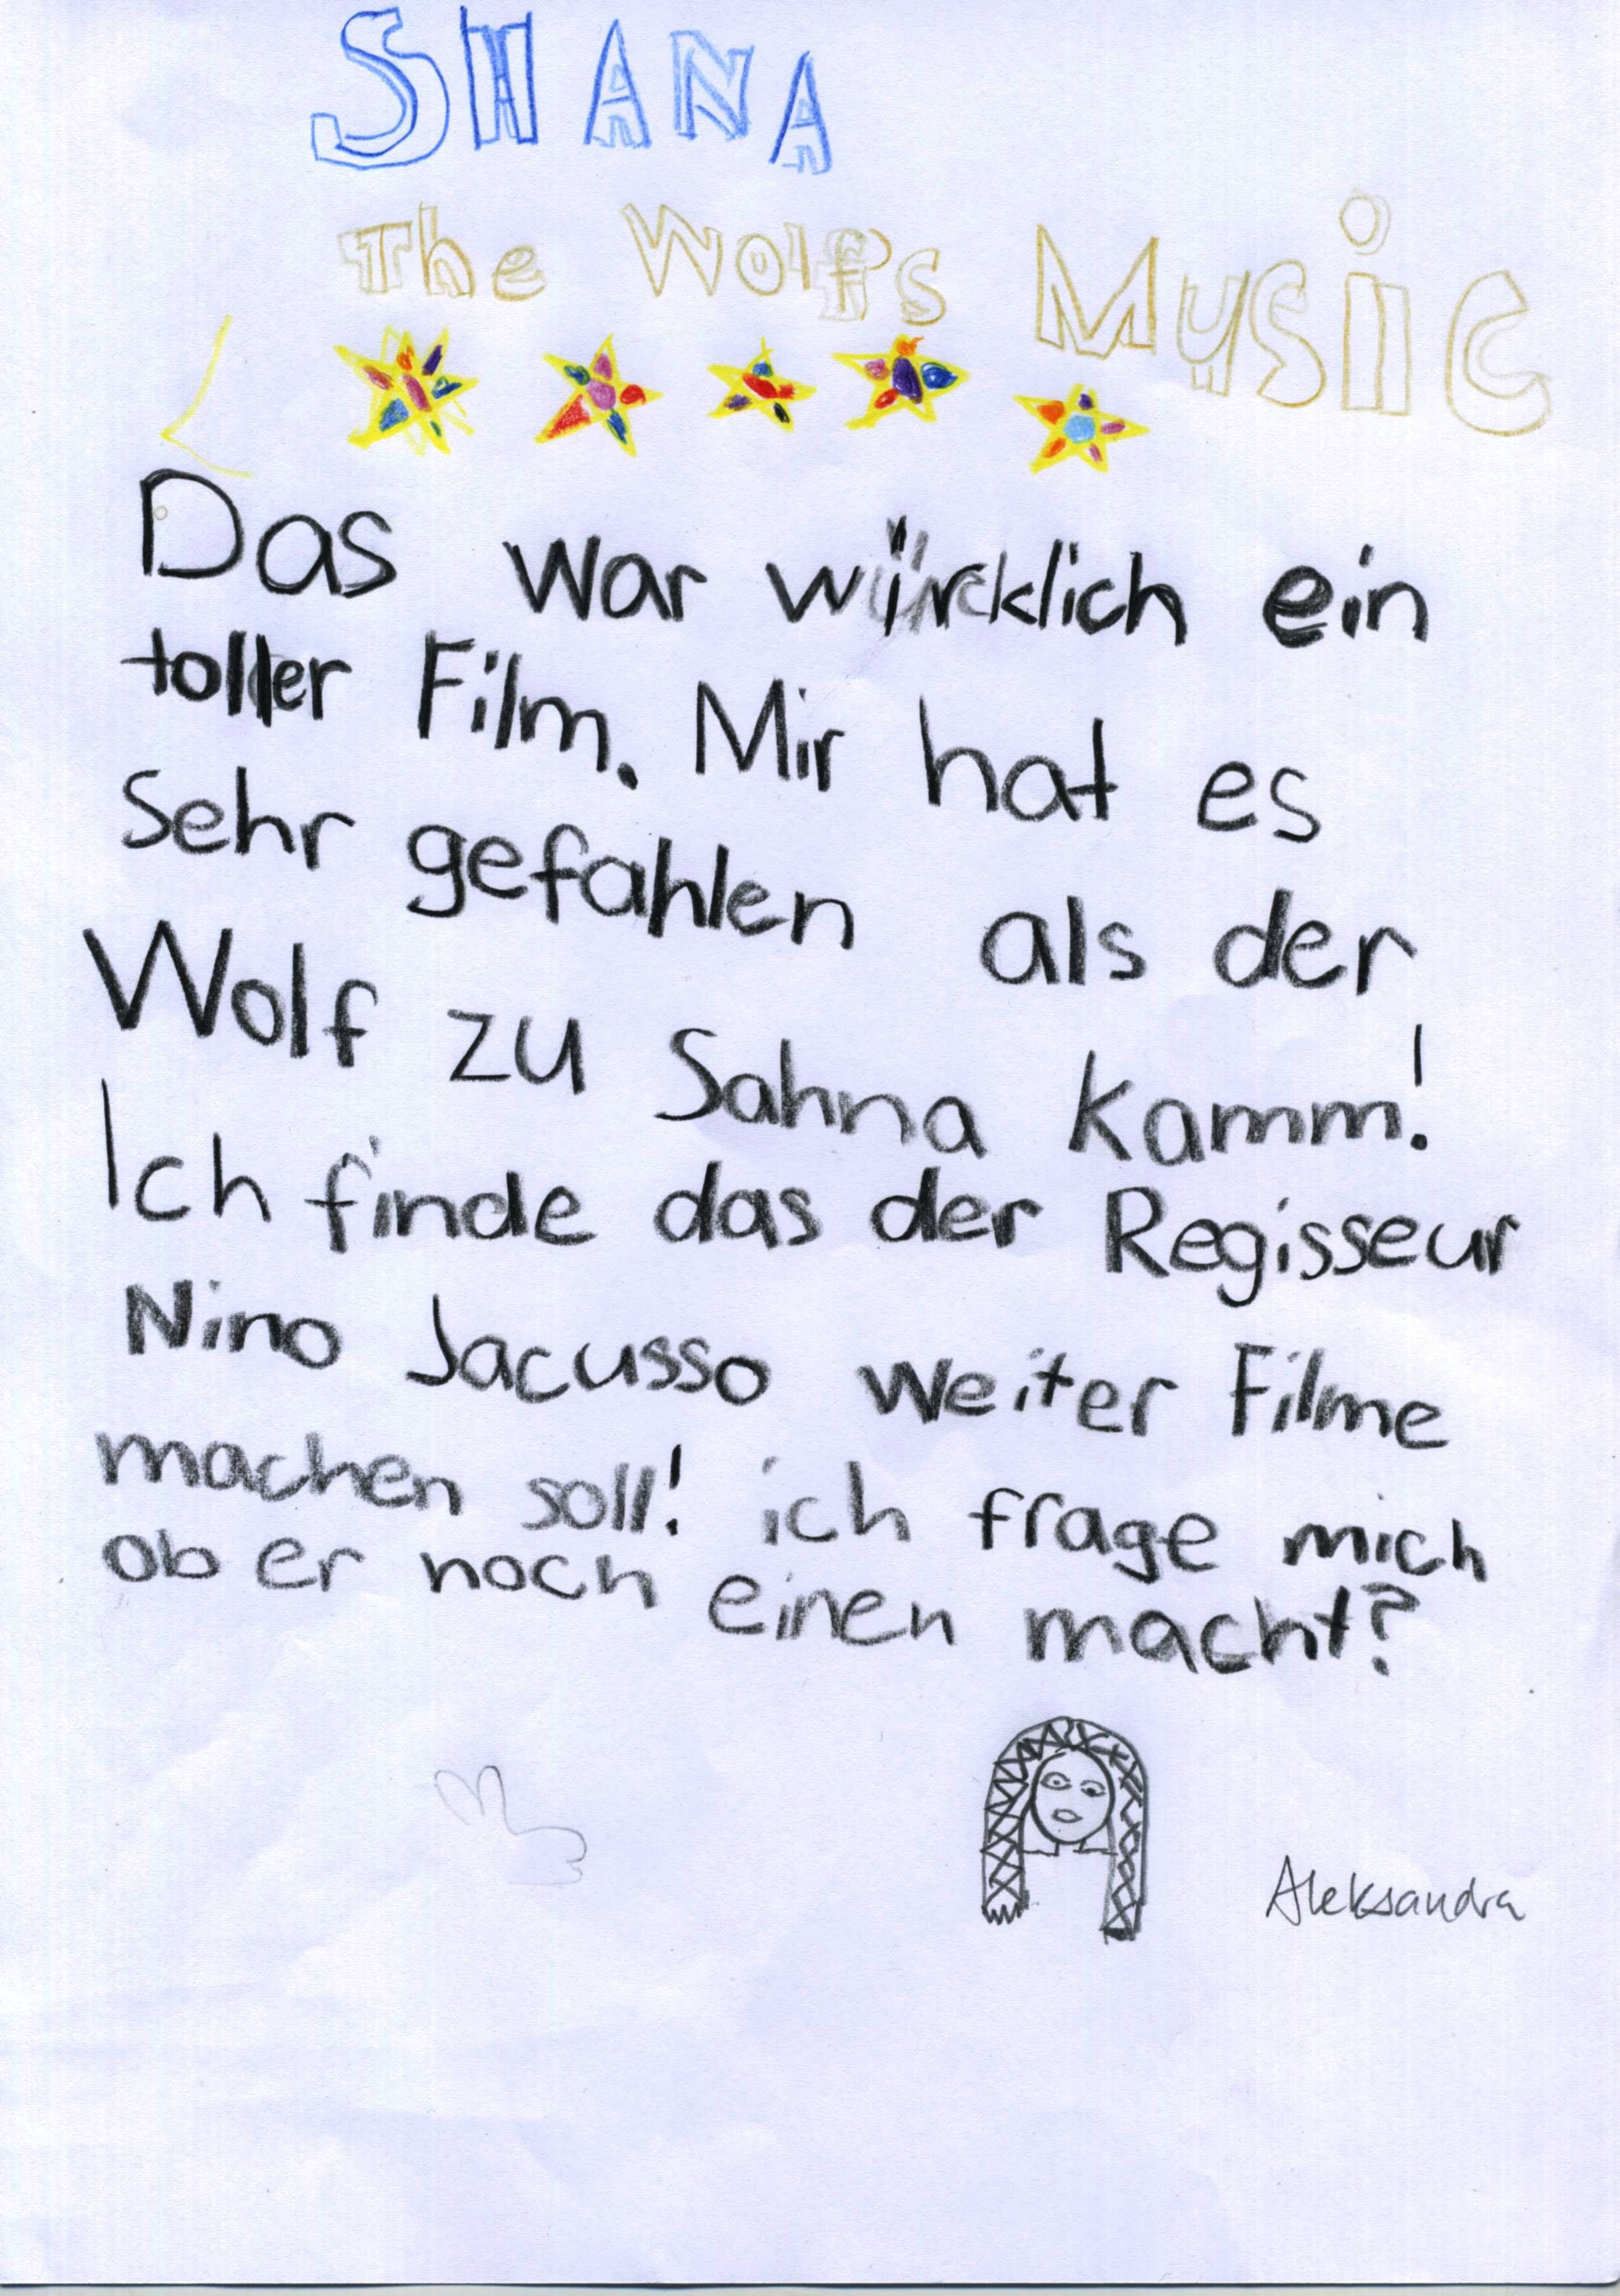 SHANA
The Wolf's Music
Das war würcklich ein
toller Film. Mir hat es
Sehr gefahlen als der
Wolf zu Sahna kamm!
Ich finde das der Regisseur
Nino Jacusso weiter Filme
machen soll! ich frage mich
ob er noch einen macht?
Aleksandra